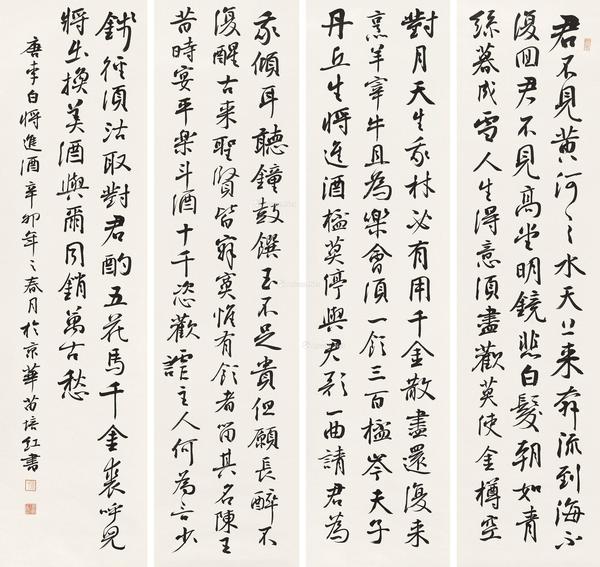 君不見黃河之水天上来奔流到海不
復回君不見高堂明鏡悲白髮朝如青
絲暮成雪人生得意須盡歡莫使金樽空
對月天生我材必有用千金散盡還復来
烹羊宰牛且為樂會須一飲三百杯岑夫子
丹丘生將進酒杯莫停與君歌一曲請君為
我傾耳聽鐘鼓饌玉不足貴但願長醉不
復醒古来聖賢皆寂寞惟有飲者留其名陳王
昔時宴平樂斗酒十千恣歡謔主人何為言少
錢徑須沽取對君酌五花馬千金裘呼兒
將出換美酒與爾同銷萬古愁
唐李白將進酒辛卯年之春月於京華苗培紅書